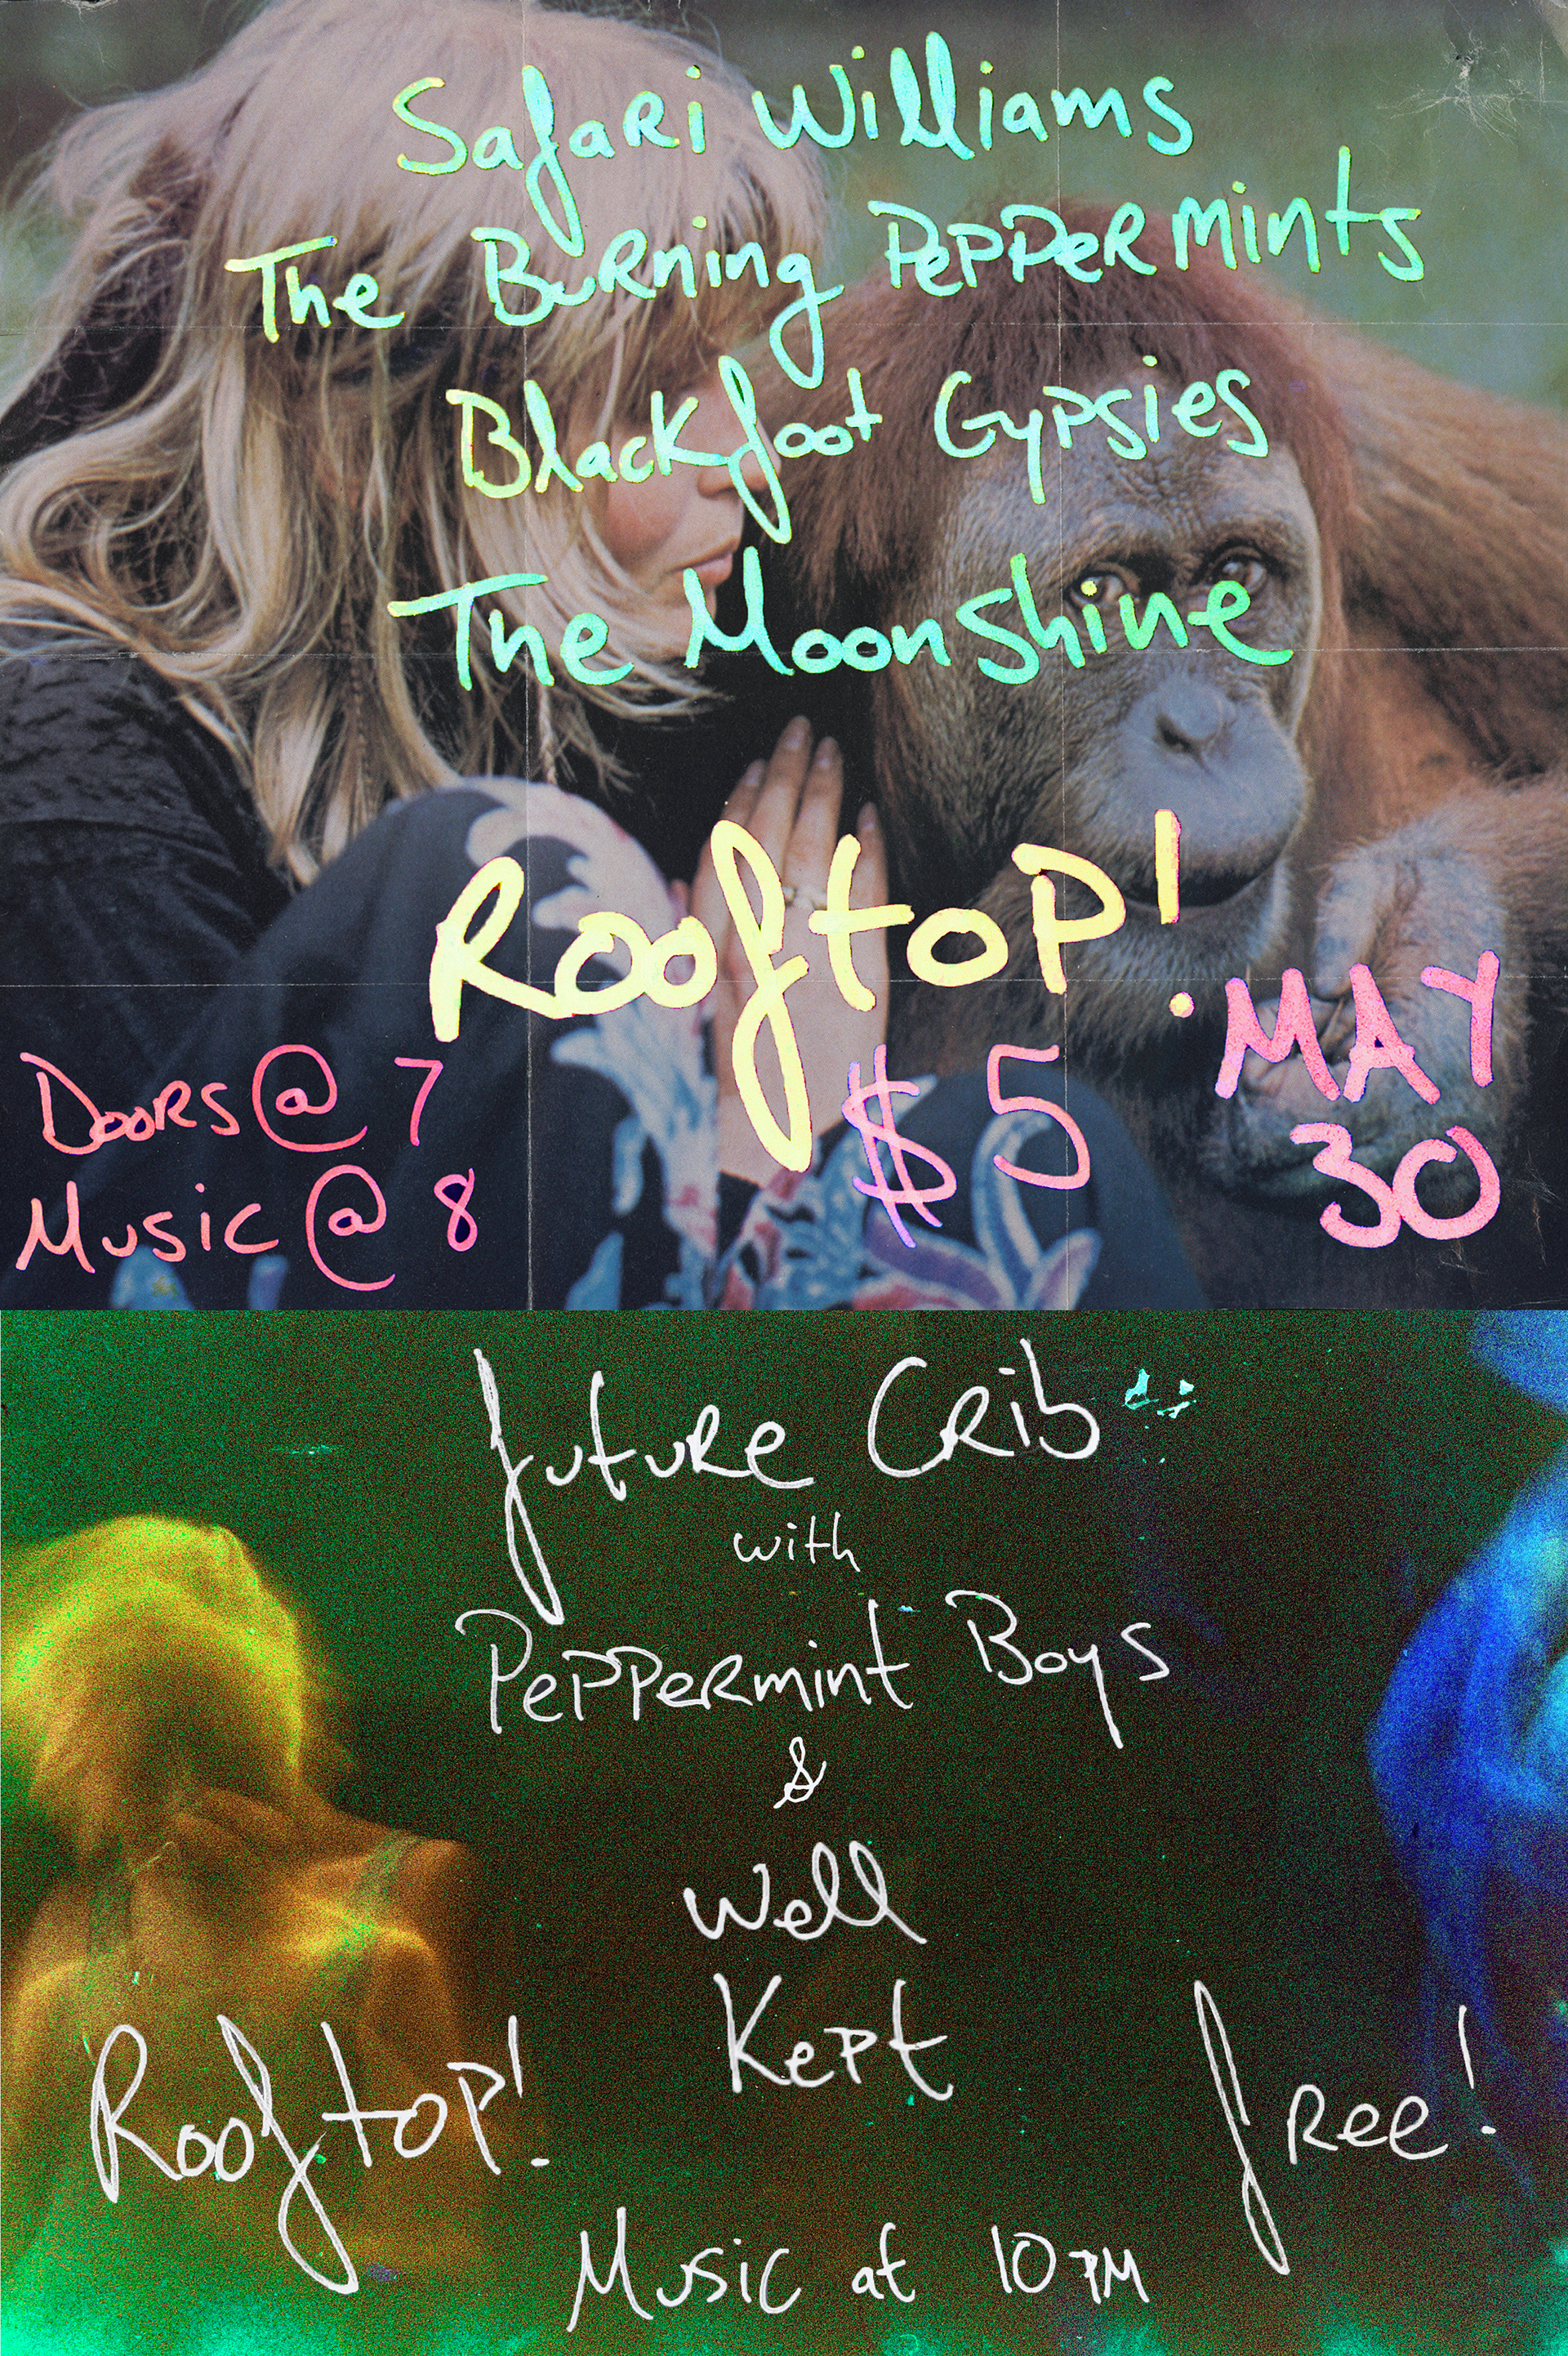 Safari Williams
The Burning Peppermints
Blackfoot Gypsies
The Moonshine
Rooftop!
Doors @ 7
Music @ 8
$5
MAY
30
future Crib
with
Peppermint Boys
&
Well
Kept
Rooftop!
free!
Music at 10 PM